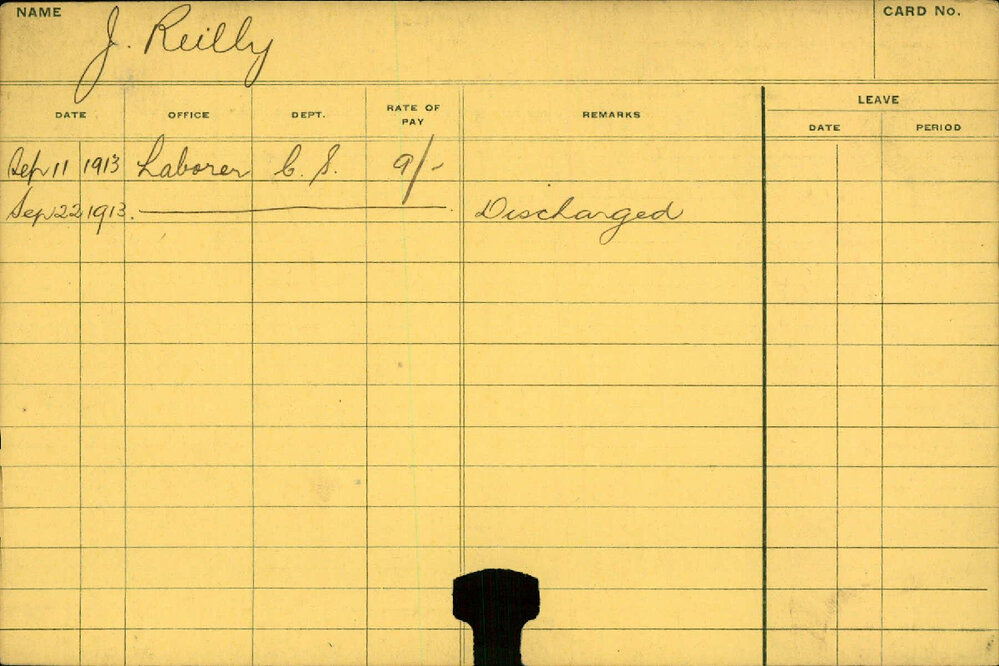 NAME J. Reilly CARD No.
DATE OFFICE DEPT. RATE OF PAY REMARKS LEAVE
DATE PERIOD
Sep 11 1913 Laborer C. S. 9/-
Sep 22 1913. Discharged